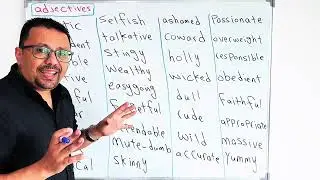 adjectives
Selfish
talkative
stingy
wealthy
easygoing
Mute-dumb
skinny
ashamed
coward
holly
wicked
dull
rude
wild
accurate
Passionate
overweight
responsible
obedient
faithful
appropriate
massive
yummy